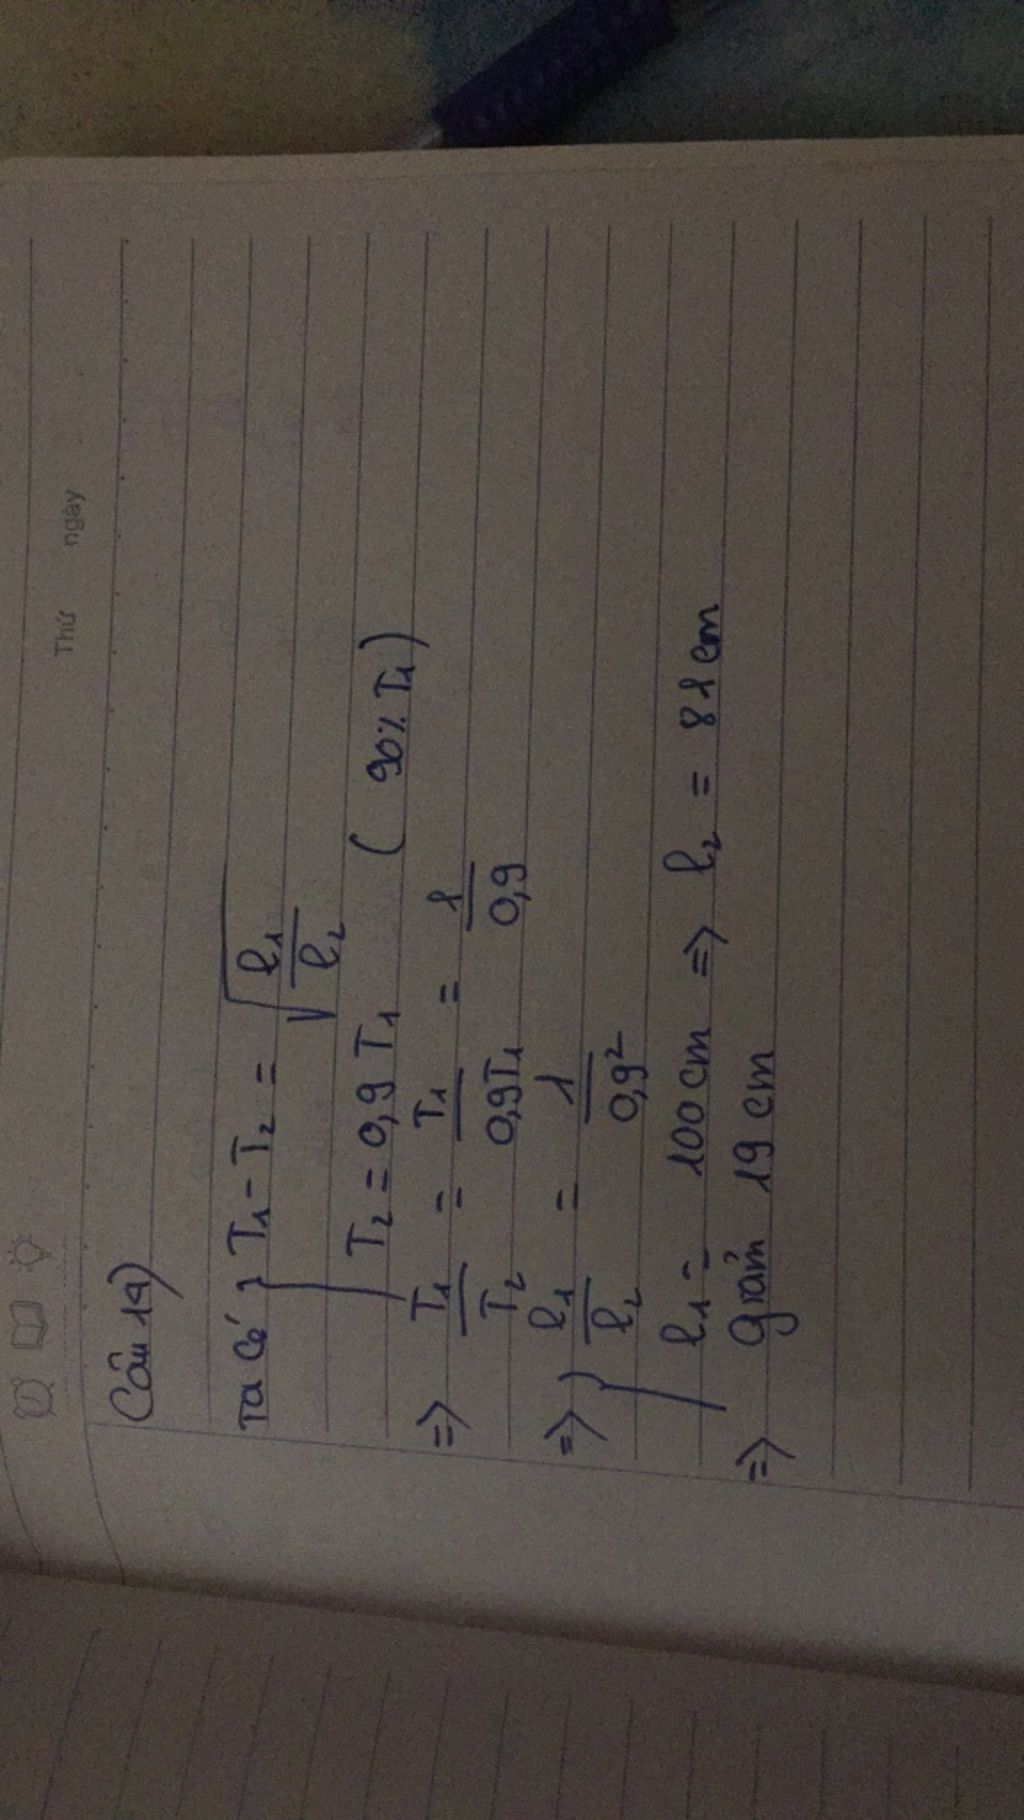 Thứ ngày
Câu 19)
Ta có } T₁ - T₂ = √(l₁/l₂)
T₂ = 0,9 T₁ ( 90% T₁)
=> T₁/T₂ = T₁/0,9T₁ = 1/0,9
=> } l₁/l₂ = 1/0,9²
l₁ = 100 cm => l₂ = 81 cm
=> giảm 19 cm